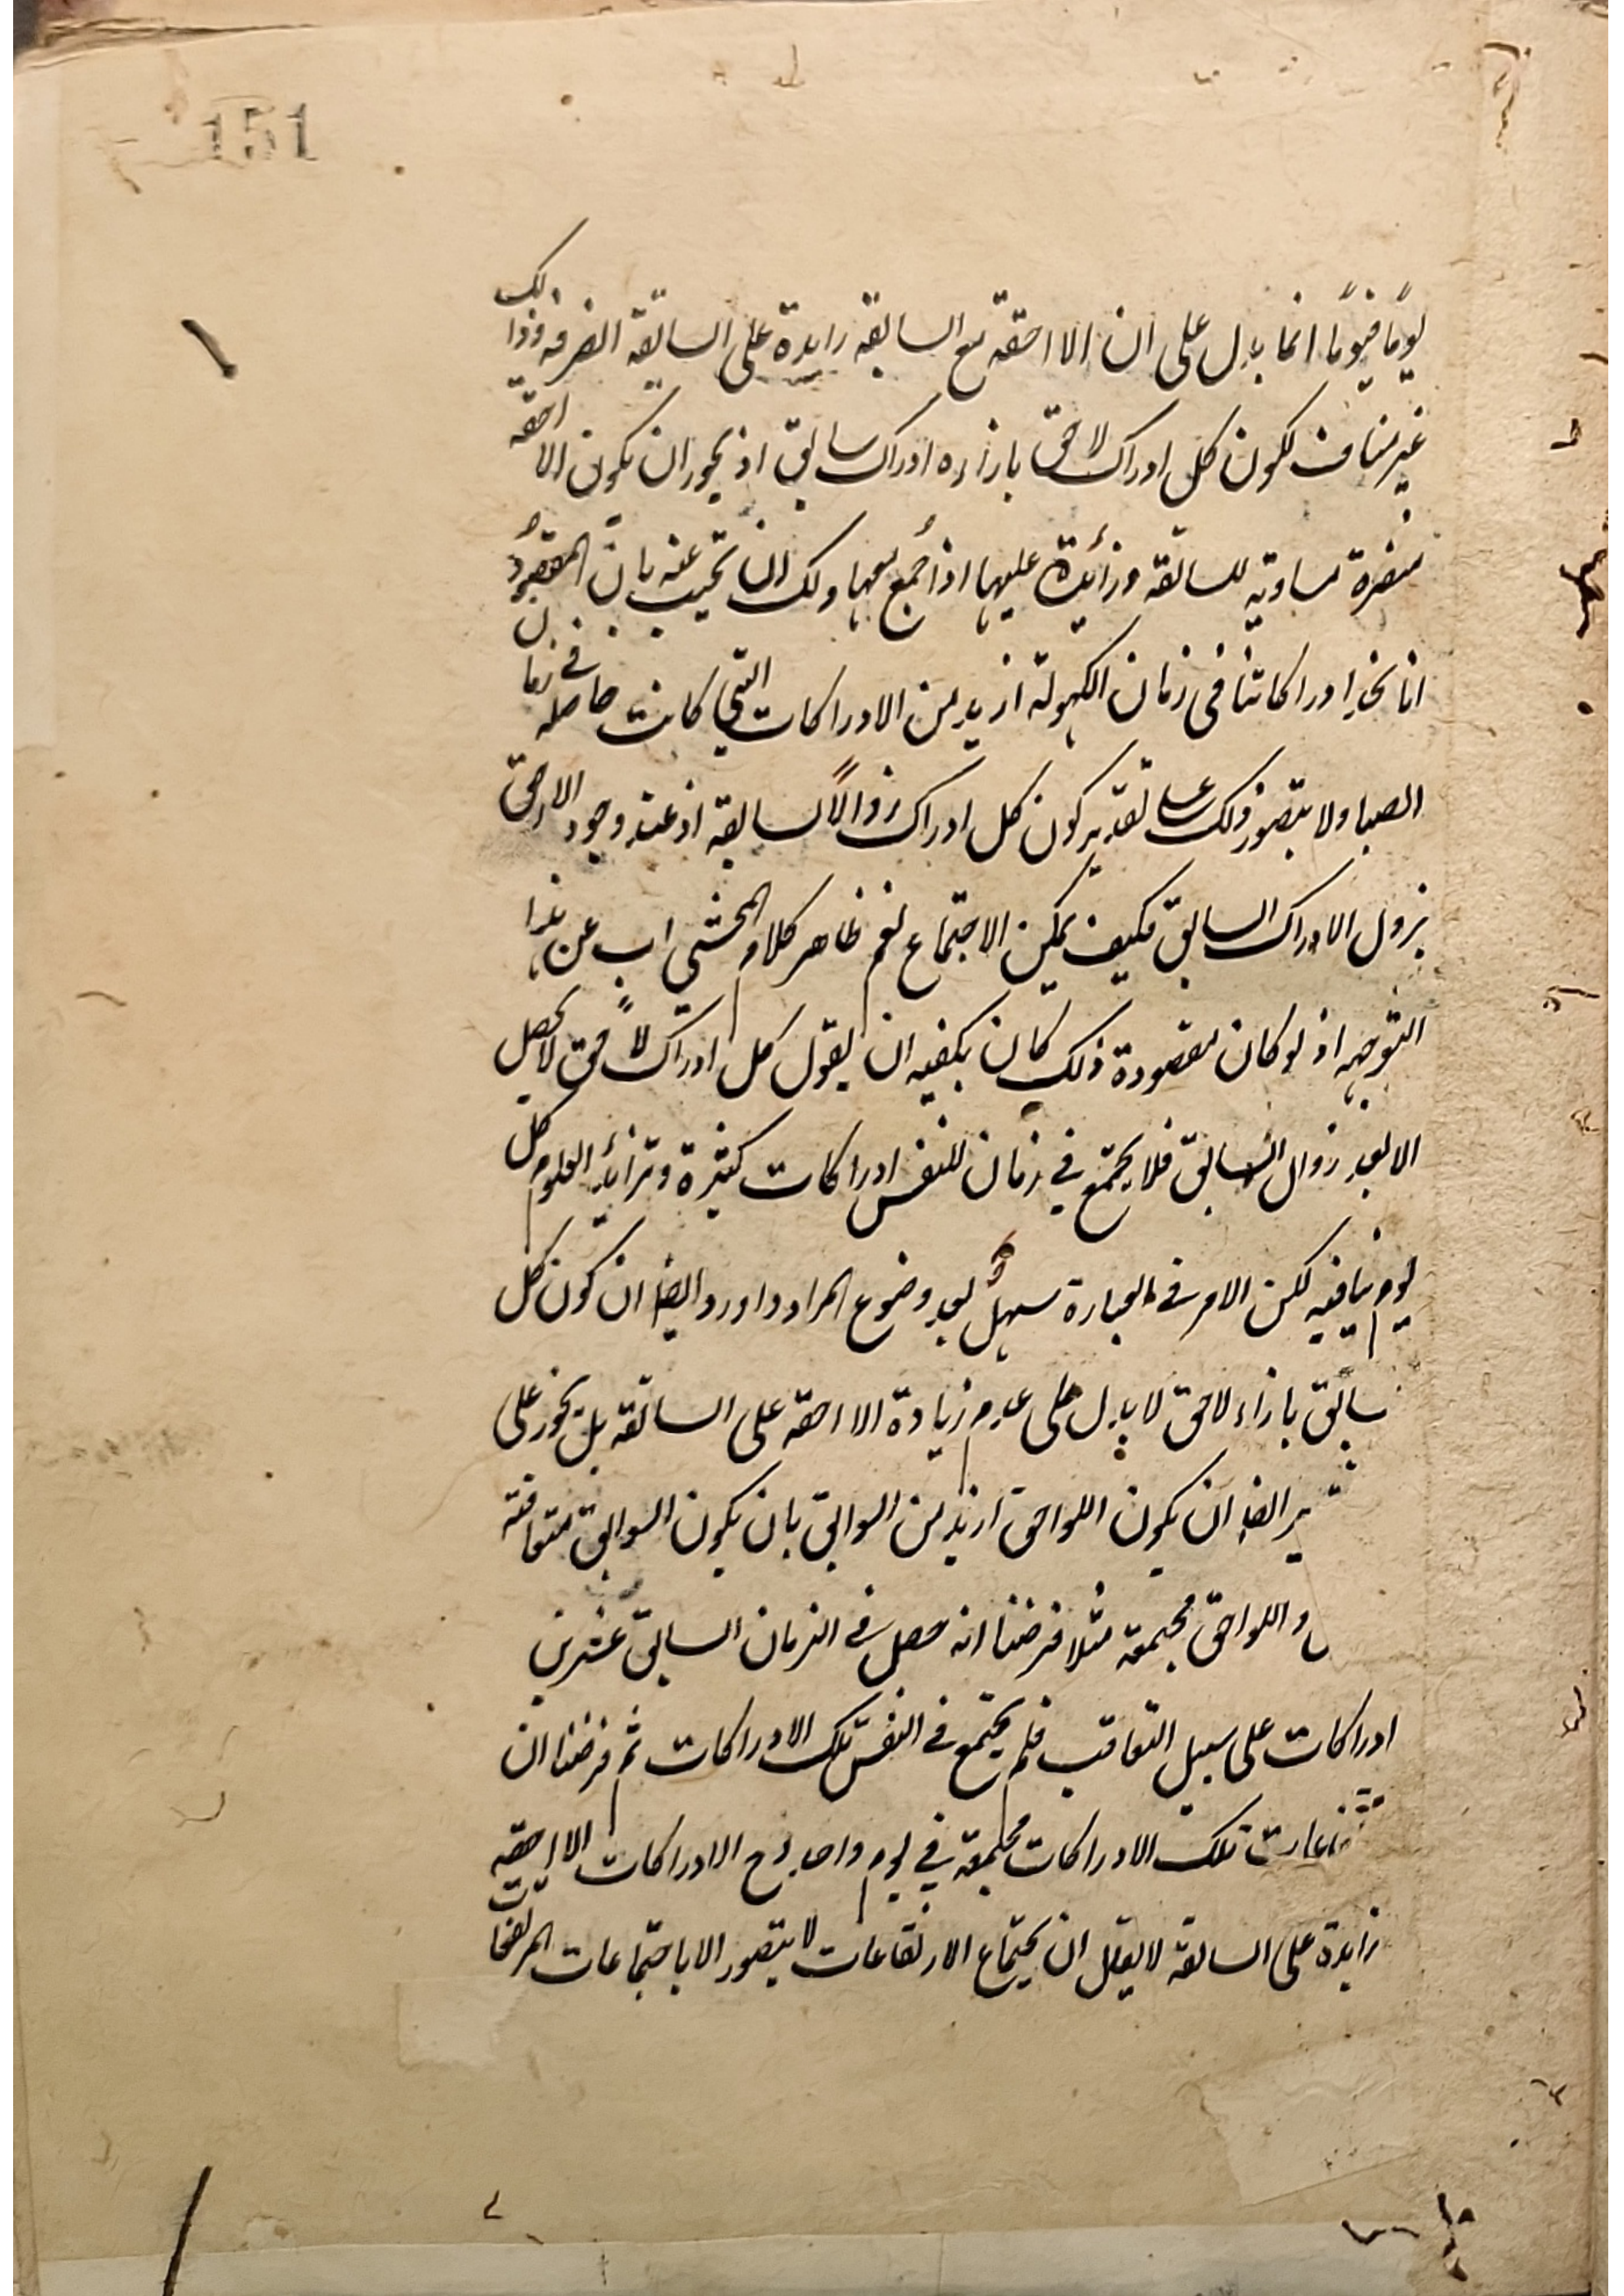 151
يومًا فيومًا انما يدل على ان اللاحقة مع السابقة زايدة على السابقة الصرفه وذلك
غير مناف لكون كل ادراك لاحق بازاءه ادراك سابق اذ يجوز ان يكون اللاحقه
منفردة مساوية للسابقه وزائدة عليها اذا أجمع معها ولك ان تجيب عنه بان المقصود
انا نجد ادراكاتنا في زمان الكهولة ازيد من الادراكات التي كانت حاصله في زمان
الصبا ولا يتصور ذلك على تقدير كون كل ادراك زوالًا لسابقه اذ عند وجود اللاحق
يزول الادراك السابق فكيف يمكن الاجتماع نعم ظاهر كلام المحشي اب عن هذا
التوجيه اذ لو كان مقصوده ذلك كان يكفيه ان يقول كل ادراك لاحق لا يحصل
الا بعد زوال السابق فلا يجتمع في زمان للنفس ادراكات كثيرة وتزائد العلوم كل
يوم ينافيه لكن الامر في العبارة سهل بعد وضوح المراد واورد ايضا ان كون كل
سابق بازاء لاحق لا يدل على عدم زيادة اللاحقه على السابقه بل يجوز على
ير ايضا ان يكون اللواحق ازيد من السوابق بان يكون السوابق متعاقبة
و اللواحق مجتمعة مثلا فرضنا انه حصل في الزمان السابق عشرين
ادراكات على سبيل التعاقب فلم يجتمع في النفس تلك الادراكات ثم فرضنا ان
تلك الادراكات مجتمعة في يوم واحد وح الادراكات اللاحقة
زايدة على السابقه لا يقال ان يجتماع الارتفاعات لا يتصور الا باجتماعات المرتفعات